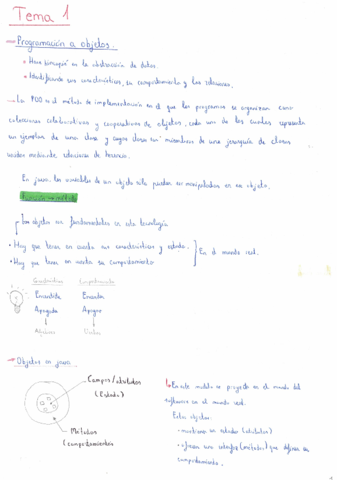 Tema 1
→ Programación a objetos.
• Hace hincapié en la abstracción de datos.
• Identificando sus características, su comportamiento y las relaciones.
→ La POO es el método de implementación en el que los programas se organizan como
colecciones colaborativas y cooperativas de objetos, cada uno de los cuales representa
un ejemplar de una clase y cuyas clases son miembros de una jerarquía de clases
unidas mediante relaciones de herencia.
En java, las variables de un objeto sólo pueden ser manipuladas en su objeto.
Los objetos son fundamentales en esta tecnología
• Hay que tener en cuenta sus características y estado.
• Hay que tener en cuenta su comportamiento
En el mundo real.
Características Comportamiento
Encendida Encender
Apagada Apagar
↓ ↓
→ Objetos en java.
Campos/atributos
(Estado)
Métodos
(comportamiento
En este modelo se proyecta en el mundo del
software en el mundo real.
Estos objetos:
- mantienen su estado (atributos)
- ofrecen una interfaz (métodos) que definen su
comportamiento.